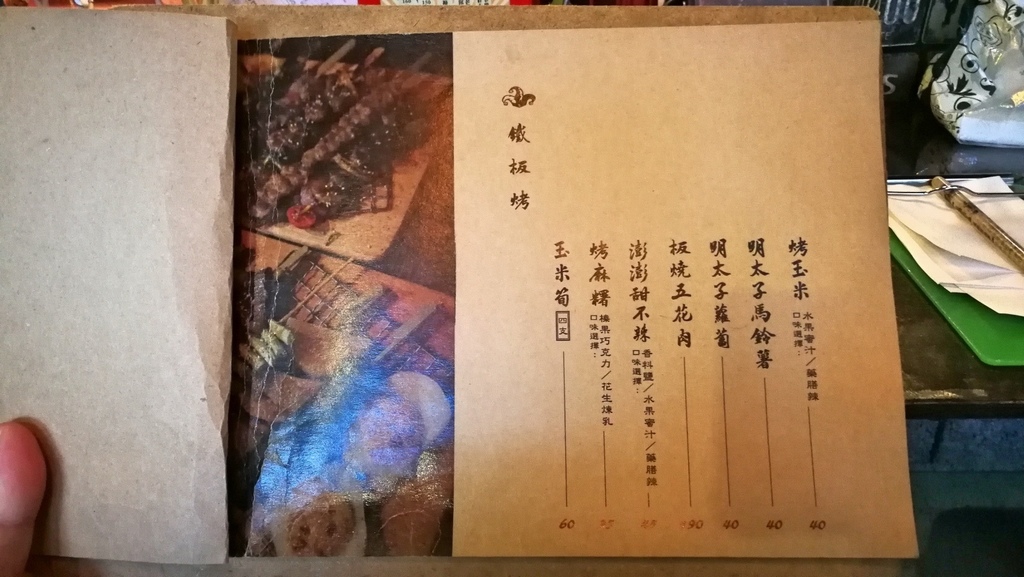 鐵板烤
烤玉米
口味選擇：
水果蜜汁／藥膳辣
40
明太子馬鈴薯
40
明太子蘿蔔
40
板燒五花肉
90
澎澎甜不辣
口味選擇：
香料鹽／水果蜜汁／藥膳辣
烤麻糬
口味選擇：
榛果巧克力／花生煉乳
玉米筍 四支
60